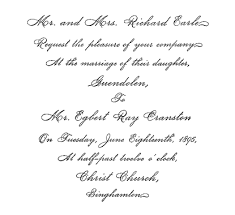 Mr. and Mrs. Richard Earle
Request the pleasure of your company
At the marriage of their daughter,
Guendolen,
To
Mr. Egbert Ray Cranston
On Tuesday, June Eighteenth, 1895,
At half-past twelve o'clock,
Christ Church,
Binghamton